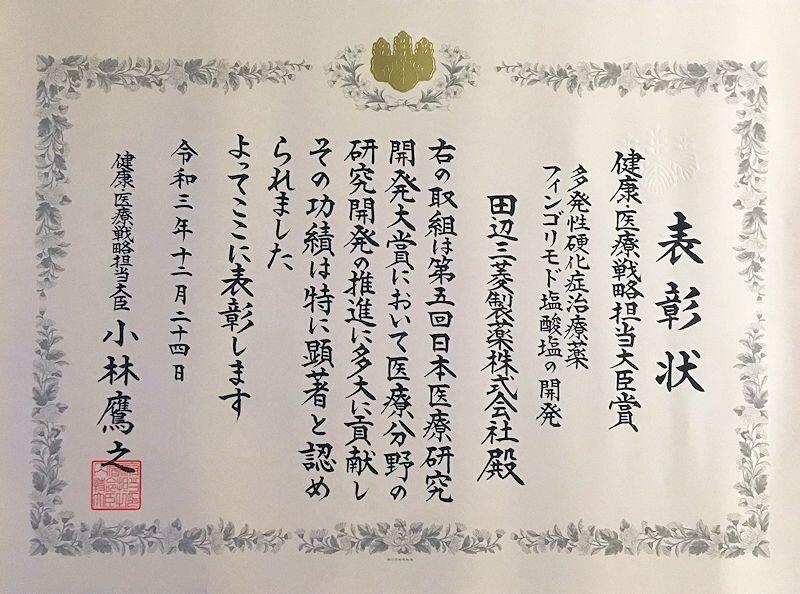 表彰状
健康・医療戦略担当大臣賞
多発性硬化症治療薬
フィンゴリモド塩酸塩の開発
田辺三菱製薬株式会社殿
右の取組は第五回日本医療研究
開発大賞において医療分野の
研究開発の推進に多大に貢献し
その功績は特に顕著と認め
られました
よってここに表彰します
令和三年十二月二十四日
健康・医療戦略担当大臣 小林鷹之